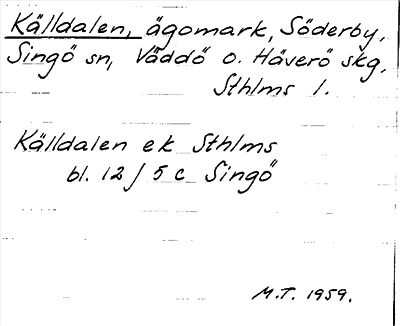 Källdalen, ägomark, Söderby,
Singö sn, Väddö o. Häverö skg,
Sthlms l.
Källdalen ek Sthlms
bl. 12 / 5 c Singö
M.T. 1959.